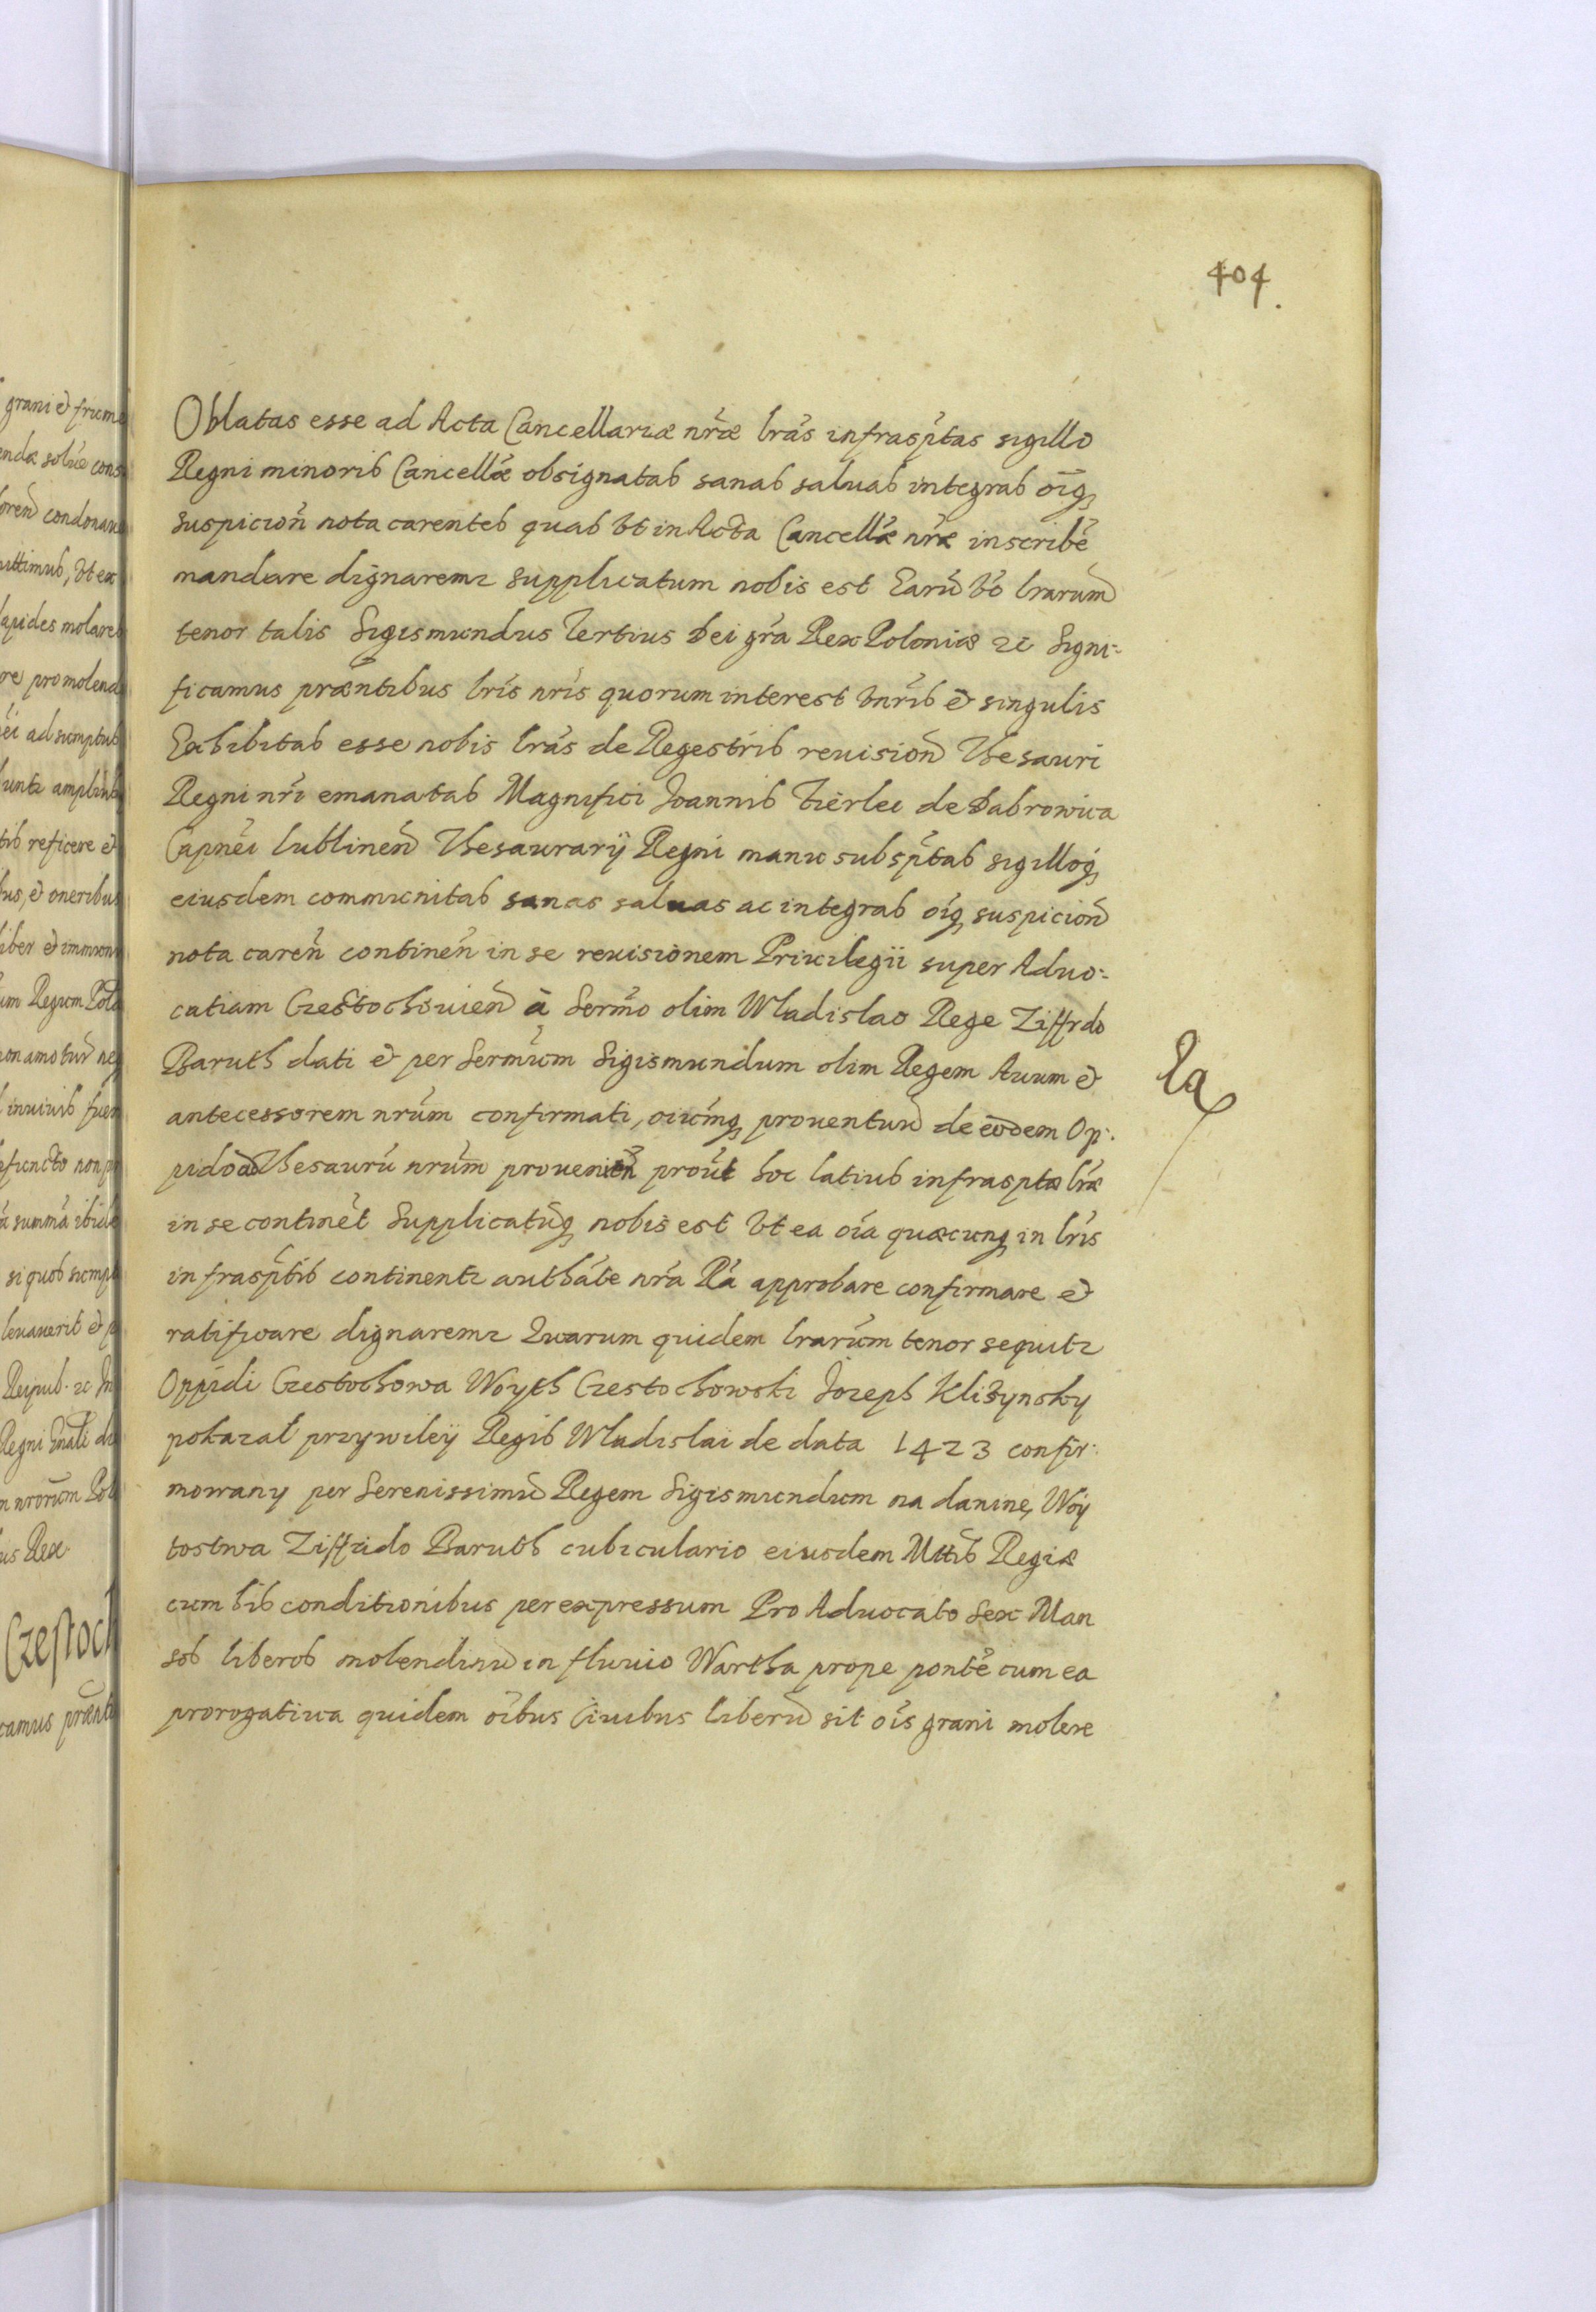 404.
Oblatas esse ad Acta Cancellariæ nr̃æ lrãs infrasp̃tas sigillo
Regni minoris Cancellæ̃ obsignatas sanas saluas integras oĩq₃
suspicioñ nota carentes quas Vt in Acta Cancellæ̃ nr̃æ inscribẽ
mandare dignaremr supplicatum nobis est Earũ Vo lrarum
tenor talis Sigismundus Tertius Dei gr̃a Rex Poloniæ rc Signi-
ficamus præñtibus lrĩs nrĩs quorum interest Vnr̃is et singulis
Exhibitas esse nobis lrãs de Regestris reuisioñ Thesauri
Regni nrĩ emanatas Magnifici Joannis Fierlei de Dabrowica
Capnẽi lublineñ Thesaurarij Regni manu subsp̃tas sigilloq₃
eiusdem communitas sanas saluas ac integras oĩq₃ suspicioñ
nota careñ contineñ in se reuisionem Priuilegii super Aduo-
catiam Czestochouieñ à Sermõ olim Wladislao Rege Ziffrdo
Baruth dati et per Sermũm Sigismundum olim Regem Auum et
antecessorem nrũm confirmati, prouentuũ de eodem Op-
pido ad Thesaurũ nrũm prouenieñ proũt hoc latius infrasptæ lræ̃
in se continẽt Supplicatũq₃ nobis est Vt ea oĩa quæcunq₃ in lrĩs
infrasp̃tis continentr authãte nrã Rã approbare confirmare et
ratificare dignaremr Quarum quidem lrarũm tenor sequitr
Oppidi Czestochowa Woyth Czestochowski Jozeph Kliszynsky
pokazal przywileÿ Regis Wladislai de data 1423 confir-
mowany per Serenissimũ Regem Sigismundum na danine, Woÿ
tostwa Ziffrido Baruth cubiculario eiusdem Mttis Regiæ
cum his conditionibus per expressum Pro Aduocato Sex Man
sos liberos molendinũ in fluuio Wartha prope pontẽ cum ea
prorogatiua quidem oĩbus Ciuibus liberũ sit oĩs grani molere